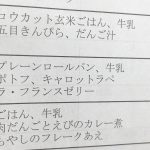 コウカット玄米ごはん、牛乳
五目きんぴら、だんご汁
プレーンロールパン、牛乳
ポトフ、キャロットラペ
ラ・フランスゼリー
ごはん、牛乳
肉だんごとえびのカレー煮
もやしのフレークあえ